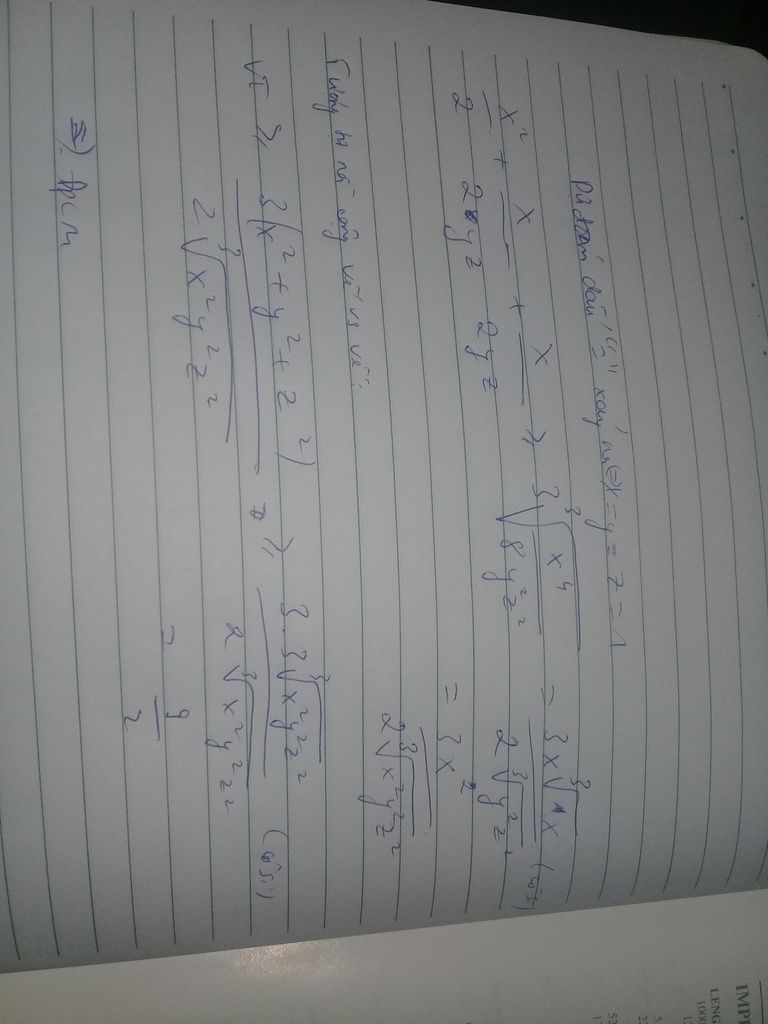 Dự đoán dấu "=" xảy ra ⇔ x = y = z = 1
x²/2 + x/2yz + x/2yz ≥ 3∛(x⁴/8y²z²) = 3x∛x/2∛(y²z²) (Côsi)
= 3x²/2∛(x²y²z²)
Tương tự rồi cộng vế vs vế:
VT ≥ 3(x² + y² + z²)/2∛(x²y²z²) ≥ 3.3∛(x²y²z²)/2∛(x²y²z²) (Côsi)
= 9/2
=) đpcm
IMP
LENG
1000